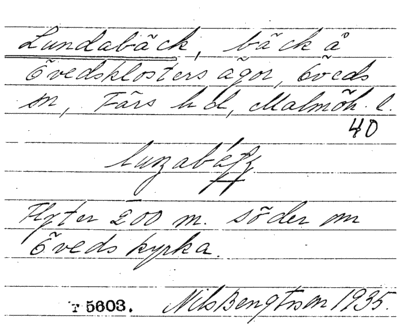 Lundabäck, bäck å
Övedsklosters ägor, Öveds
sn, Färs hd, Malmöh. l.
40
Flyter 200 m. söder om
Öveds kyrka.
5603. Nils Bengtsson 1935.